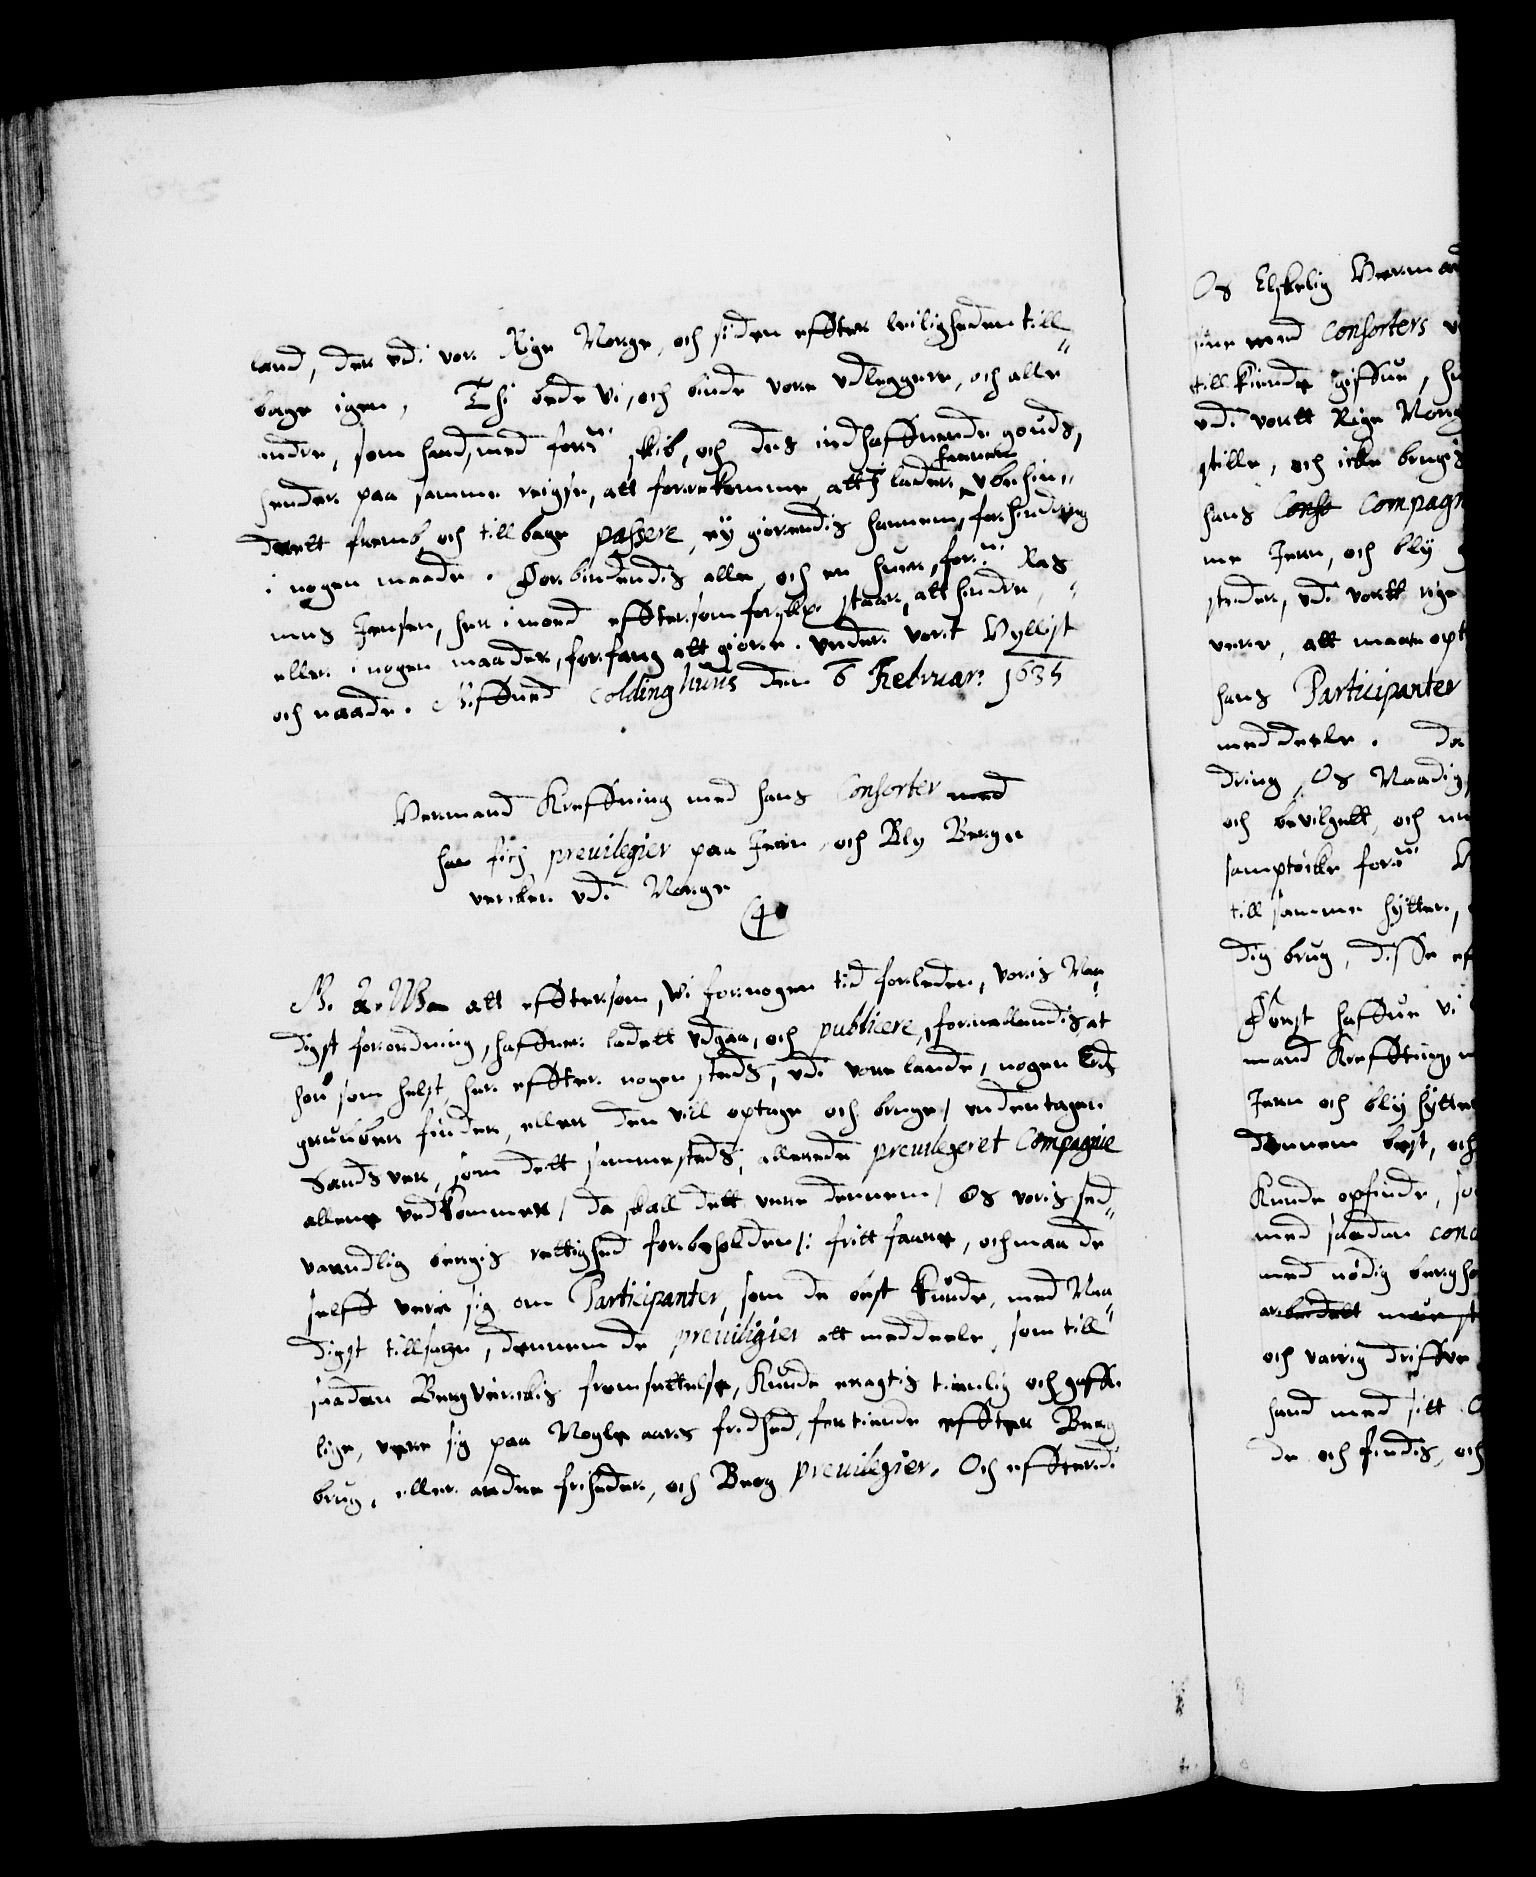 land, der vdi vor Rige Norge, och siden effter leiligheden till„
bage igen, Thi bede vi, och binde vore vdleggere, och alle
andre, som hand, med forne skib, och des indhaffuende gouds,
hender paa samme reigse, att forrekomme, att i lader hannem vbehin„
drett fremb och tillbage passere, ey giørendis hannem, forhindring
i nogen maade. Forbindendis alle, och en huer, forne Ras„
mus Jensen, her imoed effter som forskr. staar, att hindre,
eller i nogen maader, forfang att giøre. Vnder vort Hyllist
och naade. Giffued Coldinghuus den 6 Februar: 1635

Herman Kreffting med hans Consorter med
haa fick preuilegier paa Jern och Bly Berge
vercker vdi Norge

G. A. V. att efftersom, Wi for nogen tid forleden, voris Naa„
digst forordning, haffuer ladett vdgaa, och publicere, formellendis, at
huo som helst, her effter nogen steds, vdi vore lande, nogen Erds
gruuber finder, eller den vill optage och bruge, vndertagen
Sandsver, som dett sammesteds, allerede preuilegeret Compagnie
allene vedkommer, da skall dett vere dennem, Os voris sed„
vaandlig bergis rettighed forbeholden, fritt faare, och maa de
selff verie sig om Participanter, som de best kunde, med Naa„
digst tillsagn, dennem de preuiligier att meddeele, som till
saadan Bergverckis fremsettelse, Kunde eragtis tienlig och gaff„
lige, vere sig paa Nogle aars frihed, for tiende effter Berg
brug, eller andre friheder, och Berg preuilegier. Och effterdi

Os Elskelig Herman
sine med Consorters
tillkiende giffue,
vdi vortt Rige Norg
stille, och icke brugis
hans Const Compagn
me Jern, och bly
steder, vdi vortt rige
vere, att maa opt
hans Participanter
meddeele. Da
dring, Os Naadig
och bevilgett, och
samptøcke forne H
till samme hytter,
dig brug, disse eff
Først haffue vi
mand Kreffting,
Jern och bly hytter
dennem best, och
Kunde opfinde, so
med saadan cond
med nødig bergho
arbeidett
och varrig driffue
hand med sitt C
de och findis, och